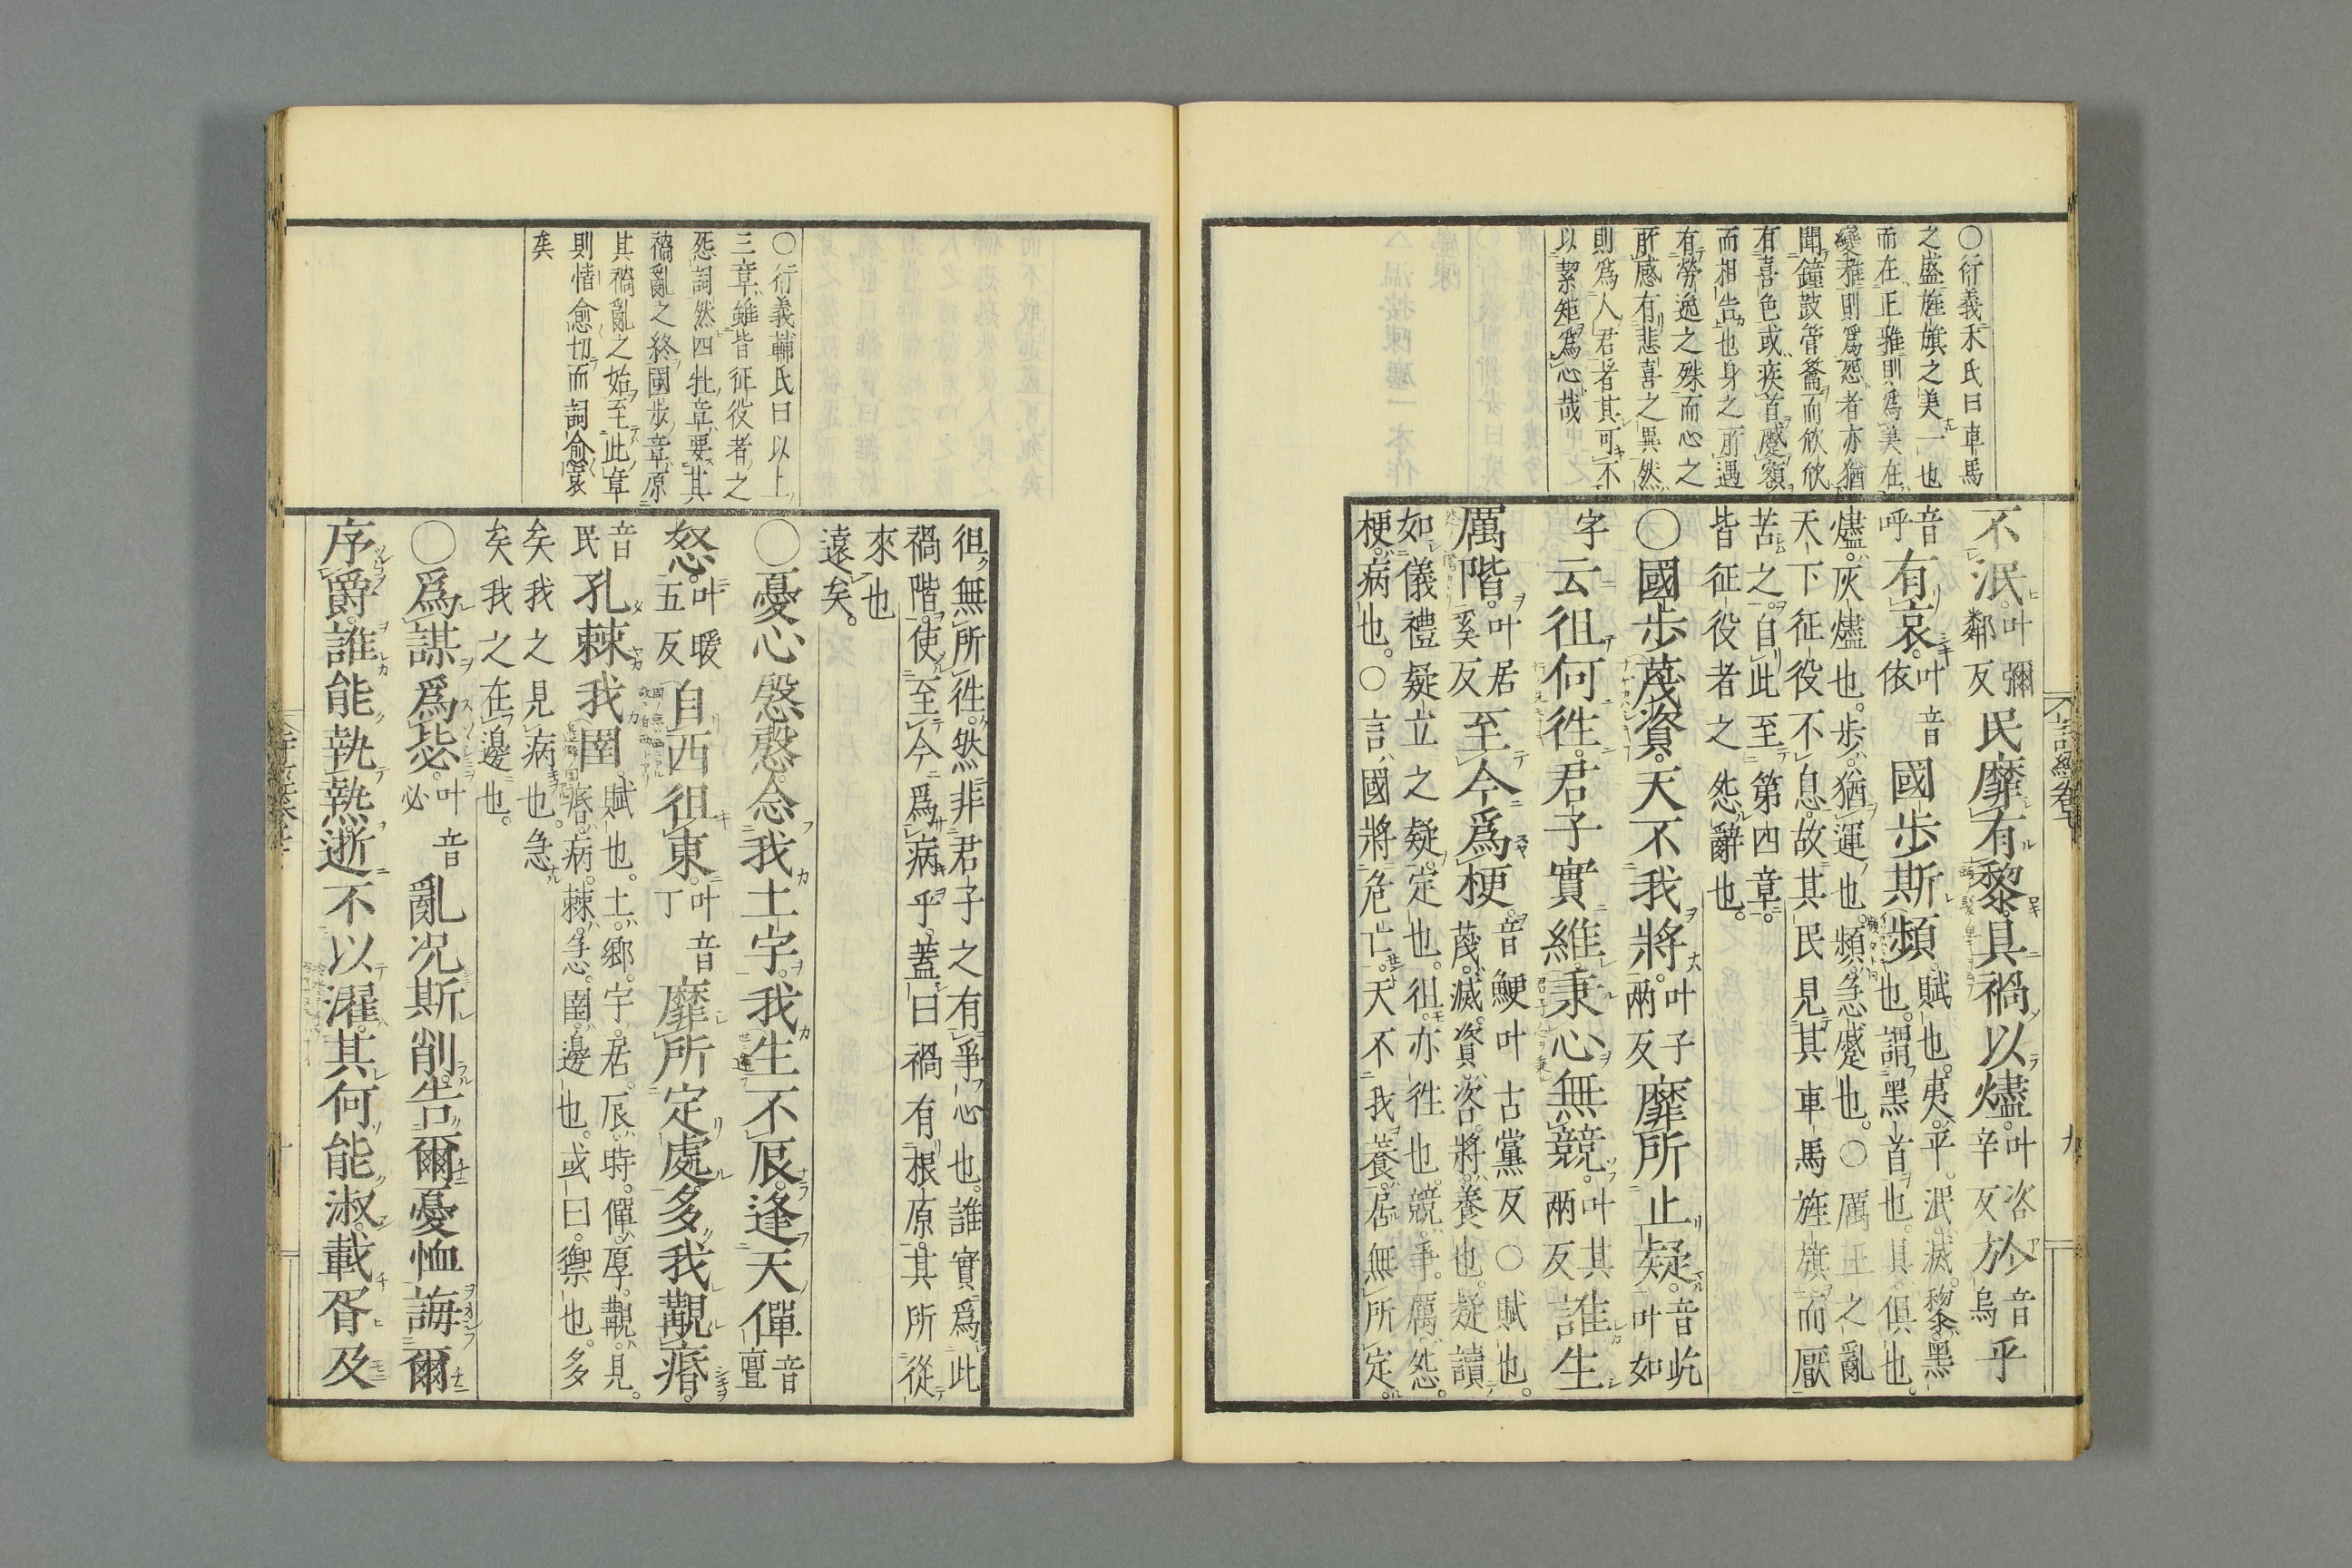 〇衍義禾氏曰車馬
之盛旌旗之美一也
而在正雅則爲美在
變雅則爲怨者亦猶
聞鐘鼓管籥而欣欣
有喜色或疾首蹙額
而相告也身之所遇
有勞逸之殊而心之
所感有悲喜之異然
則爲人君者其可不
以絜矩爲心哉
不泯叶彌鄰反民靡有黎具禍以燼叶咨辛反於音烏乎
音呼有哀叶音依國步斯頻賦也夷平泯滅黎黑
也謂黑首也具俱也
燼灰燼也步猶運也頻急蹙也〇厲王之亂
天下征役不息故其民見其車馬旌旗而厭
苦之自此至第四章
皆征役者之怨辭也
〇國步蔑資天不我將叶子兩反靡所止疑音屹叶如
字云徂何往君子實維秉心無競叶其兩反誰生
厲階叶居奚反至今爲梗音鯁叶古黨反〇賦也
蔑滅資咨將養也疑讀
如儀禮疑立之疑定也徂亦往也競爭厲怨
梗病也〇言國將危亡天不我養居無所定
徂無所往然非君子之有爭心也誰實爲此
禍階使至今爲病乎蓋曰禍有根原其所從
來也
遠矣
〇憂心慇慇念我土宇我生不辰逢天僤音亶
怒叶暖五反自西徂東叶音丁靡所定處多我覯痻
音民孔棘我圉賦也土鄉宇居辰時僤厚覯見
痻病棘急圉邊也或曰禦也多
矣我之見病也急
矣我之在邊也
〇爲謀爲毖叶音必亂况斯削告爾憂恤誨爾
序爵誰能執熱逝不以濯其何能淑載胥及
〇衍義輔氏曰以上
三章雖皆征役者之
怨詞然四牡章要其
禍亂之終國步章原
其禍亂之始至此章
則情愈切而詞愈哀
矣